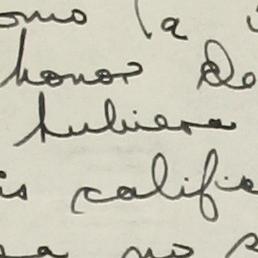 omo la
honor de
hubiera
is calific
no